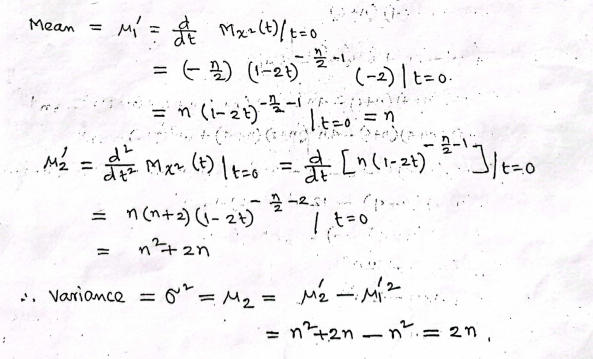 Mean = μ₁′ = d/dt Mχ²(t)|t=0
= (-n/2) (1-2t)^(-n/2-1) (-2)|t=0.
= n (1-2t)^(-n/2-1)|t=0 = n
μ₂′ = d²/dt² Mχ²(t)|t=0 = d/dt [n(1-2t)^(-n/2-1)]|t=0
= n(n+2)(1-2t)^(-n/2-2)|t=0
= n²+2n
∴ Variance = σ² = μ₂ = μ₂′ - μ₁′²
= n²+2n - n² = 2n.